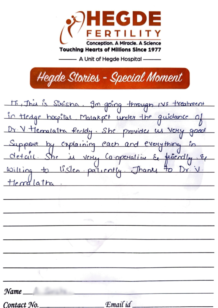 HEGDE
FERTILITY
Conception. A Miracle. A Science
Touching Hearts of Millions Since 1977
A Unit of Hegde Hospital
Hegde Stories - Special Moment
Hi, This is Sirisha. I'm going through IVF treatment
in Hedge hospital Malakpet under the guidance of
Dr V Hemalatha Reddy. She provides us very good
Support by explaining each and everything in
detail She is very Co-operative & friendly &
willing to listen patiently Thanks to Dr V
Hemalatha
Name
Contact No. Email id